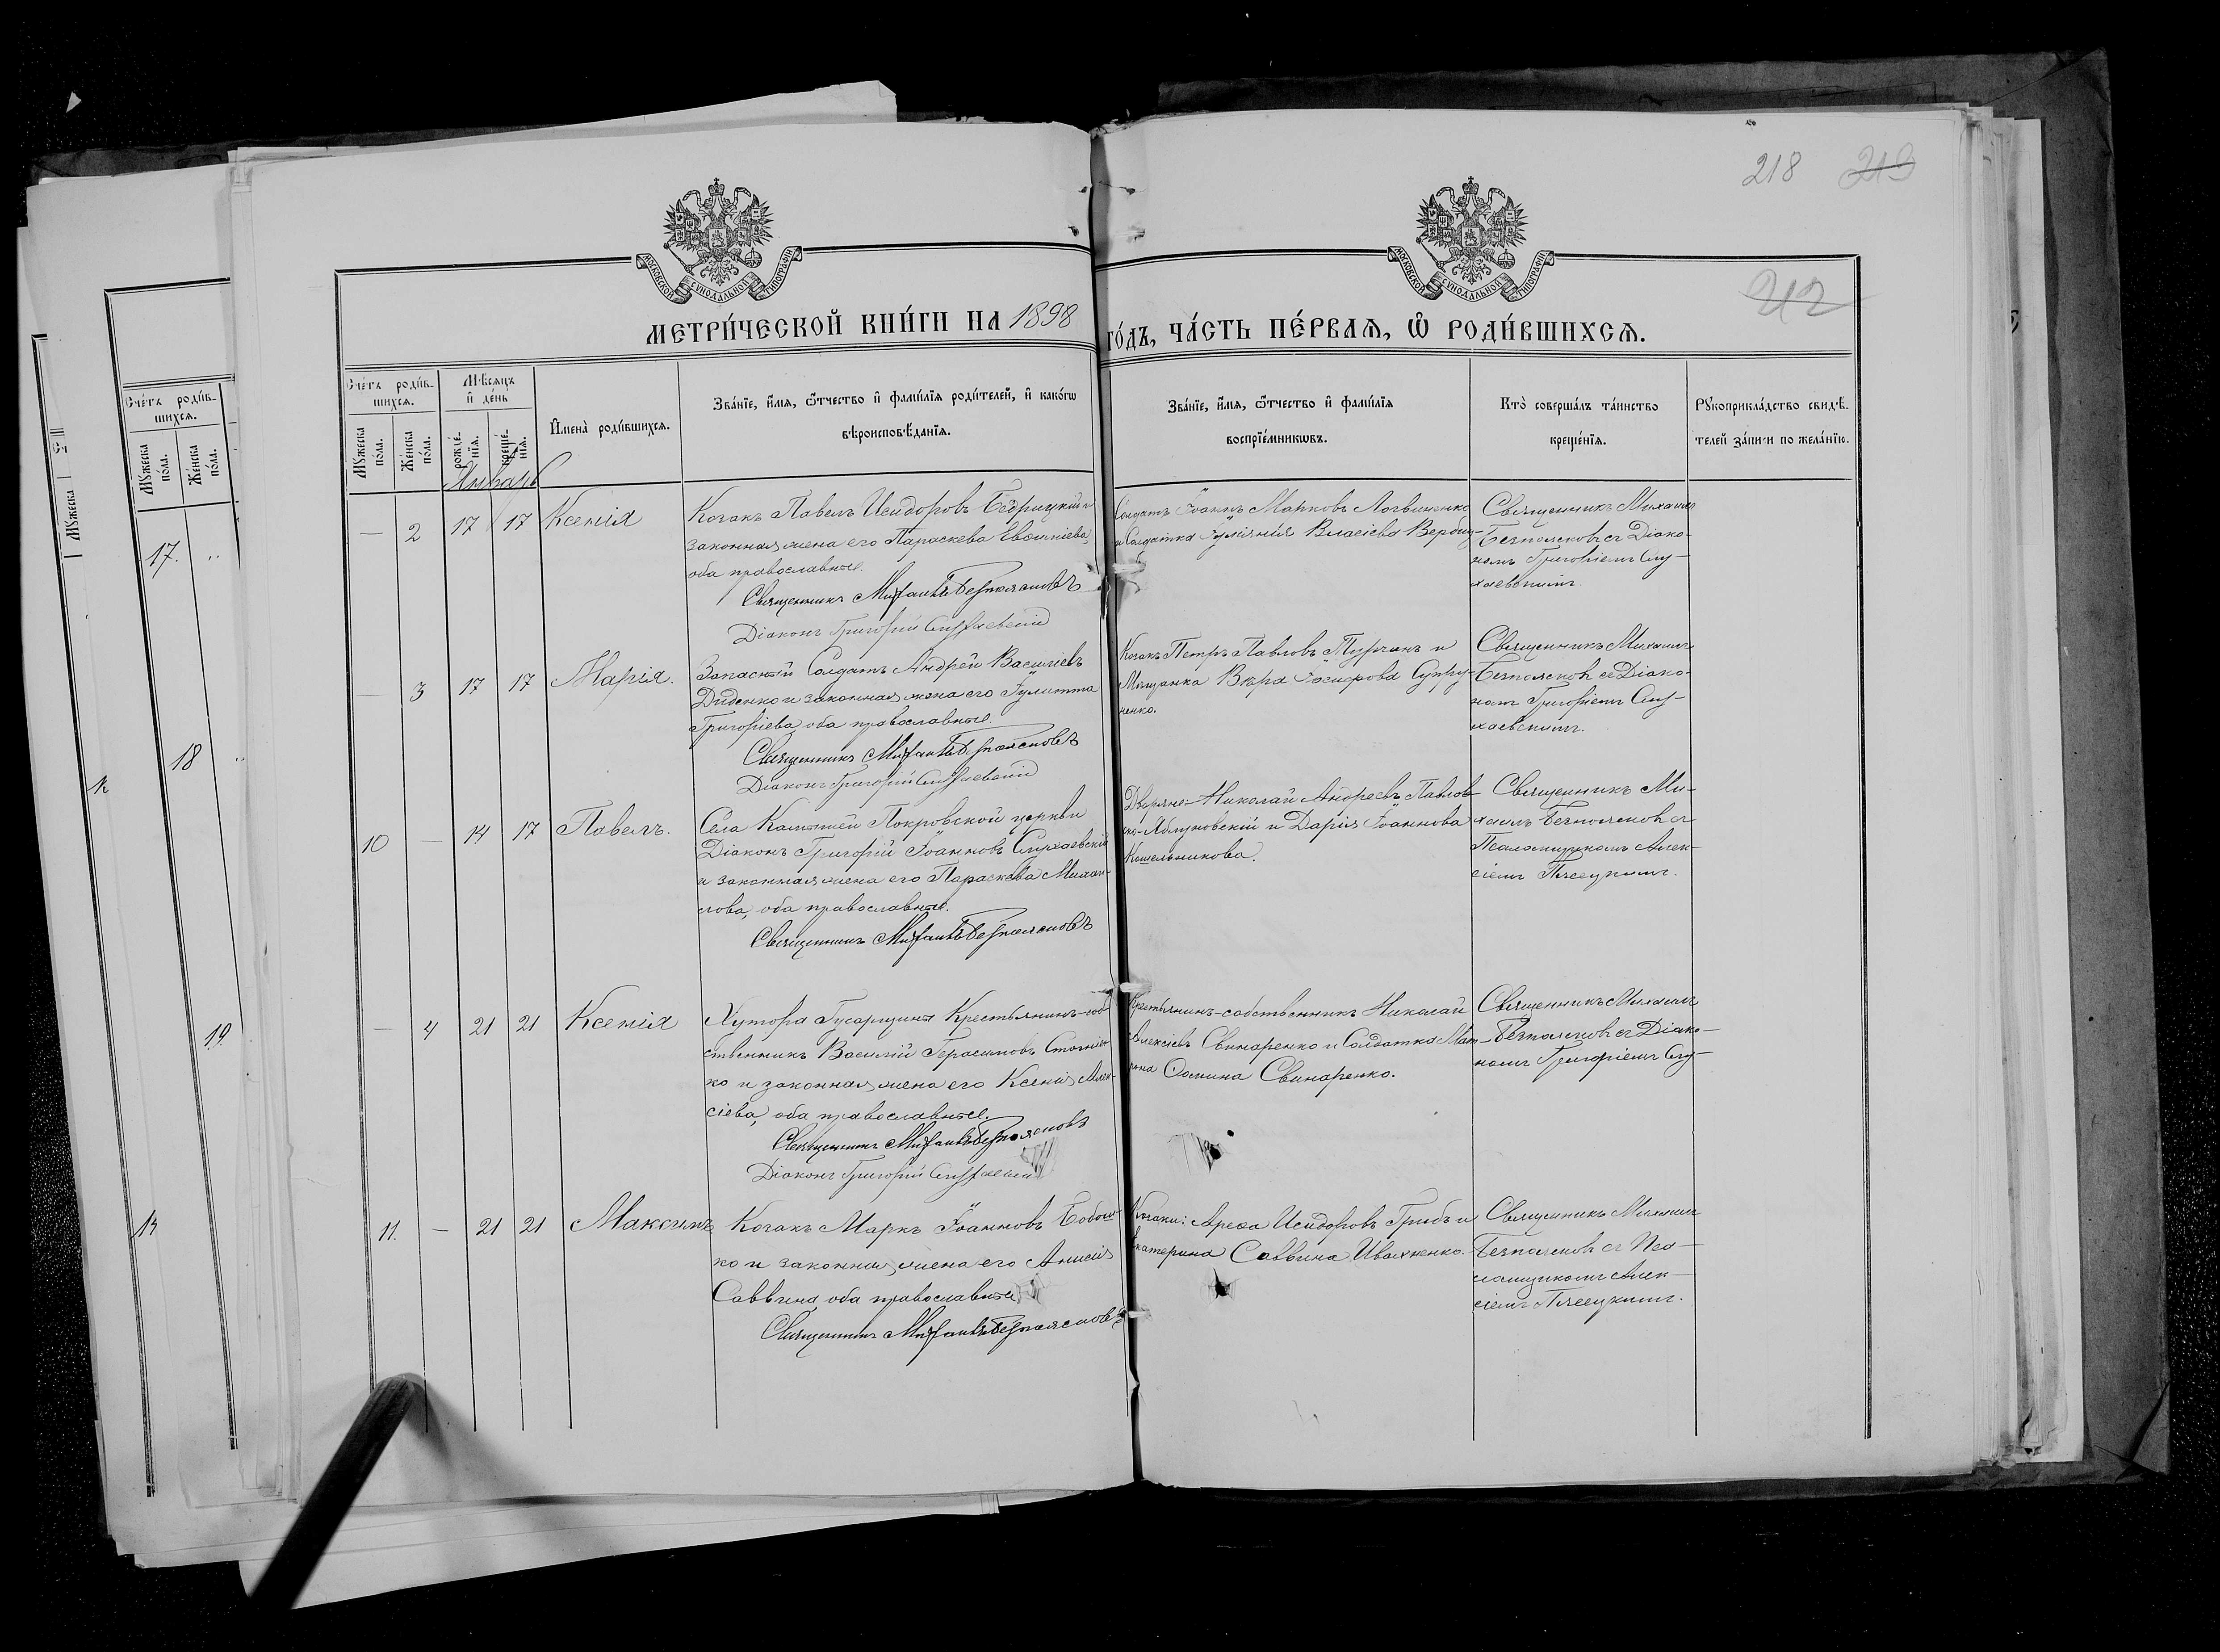 218 219
212
МОСКОВСКОЙ СѴНОДАЛЬНОЙ ТИПОГРАФІИ
МОСКОВСКОЙ СѴНОДАЛЬНОЙ ТИПОГРАФІИ
МЕТРИ́ЧЕСКОЙ КНИ́ГИ НА 1898
ГО́ДЪ, ЧА́СТЬ ПЕ́РВАѦ, Ѽ РОДИ́ВШИХСѦ.
Сче́тъ роди́в-
шихсѧ.
Мꙋ́жеска
по́ла.
Же́нска
по́ла.
Мѣ́сѧцъ
и҆ де́нь
рожде́-
нїѧ.
креще́-
нїѧ.
И҆мена̀ роди́вшихсѧ.
Зва́нїе, и҆́мѧ, ѻ҆́тчество и҆ фами́лїѧ роди́телей, и҆ како́гѡ
вѣроисповѣ́данїѧ.
Зва́нїе, и҆́мѧ, ѻ҆́тчество и҆ фами́лїѧ
воспрїе́мникѡвъ.
Кто̀ соверша́лъ та́инство
креще́нїѧ.
Рꙋкоприкла́дство свидѣ́-
телей за́писи по жела́нїю.
Январь
— 2 17 17 Ксенія
Козакъ Павелъ Исидоровъ Бедрицкій и
законная жена его Параскева Евѳиміева,
оба православные.
Священникъ Михаилъ Безпоясновъ
Діаконъ Григорій Слухаевскій
Солдатъ Іоаннъ Марковъ Логвиненко
и Солдатка Іуліянія Власіева Вербиц-
Священникъ Михаилъ
Безпоясновъ съ Діако-
номъ Григоріемъ Слу-
хаевскимъ.
— 3 17 17 Марія.
Запасной Солдатъ Андрей Василіевъ
Диденко и законная жена его Іулитта
Григоріева, оба православные.
Священникъ Михаилъ Безпоясновъ
Діаконъ Григорій Слухаевскій
Козакъ Петръ Павловъ и
Мѣщанка Вѣра Іосифова Супру-
ненко.
Священникъ Михаилъ
Безпоясновъ съ Діако-
номъ Григоріемъ Слу-
хаевскимъ.
10 — 14 17 Павелъ.
Села Покровской церкви
Діаконъ Григорій Іоанновъ Слухаевскій
и законная жена его Параскева Михаи-
лова, оба православные.
Священникъ Михаилъ Безпоясновъ
Дворяне: Николай Андреевъ Павлов-
ко-Яблуновскій и Дарія Іоаннова
Кошельникова.
Священникъ Ми-
хаилъ Безпоясновъ съ
Псаломщикомъ Алек-
сіемъ Плесецкимъ.
— 4 21 21 Ксенія
Хутора Гусарщины Крестьянинъ-соб-
ственникъ Василій Герасимовъ
ко и законная жена его Ксенія Алек-
сіева, оба православные.
Священникъ Михаилъ Безпоясновъ
Діаконъ Григорій Слухаевскій
Крестьянинъ-собственникъ Николай
Алексіевъ Свинаренко и Солдатка Мат-
рона Ѳомина Свинаренко.
Священникъ Михаилъ
Безпоясновъ съ Діако-
номъ Григоріемъ Слу-
11. — 21 21 Максимъ
Козакъ Маркъ Іоанновъ Бобош-
ко и законная жена его Анисія
Саввина, оба православные
Священникъ Михаилъ Безпоясновъ
Козаки: Арефа Исидоровъ Грибъ и
Екатерина Саввина Ивахненко.
Священникъ Михаилъ
Безпоясновъ съ Пса-
ломщикомъ Алек-
сіемъ Плесецкимъ.
Сче́тъ роди́в-
шихсѧ.
Мꙋ́жеска
по́ла.
Же́нска
по́ла.
Мꙋ́жеска
17.
18
19.